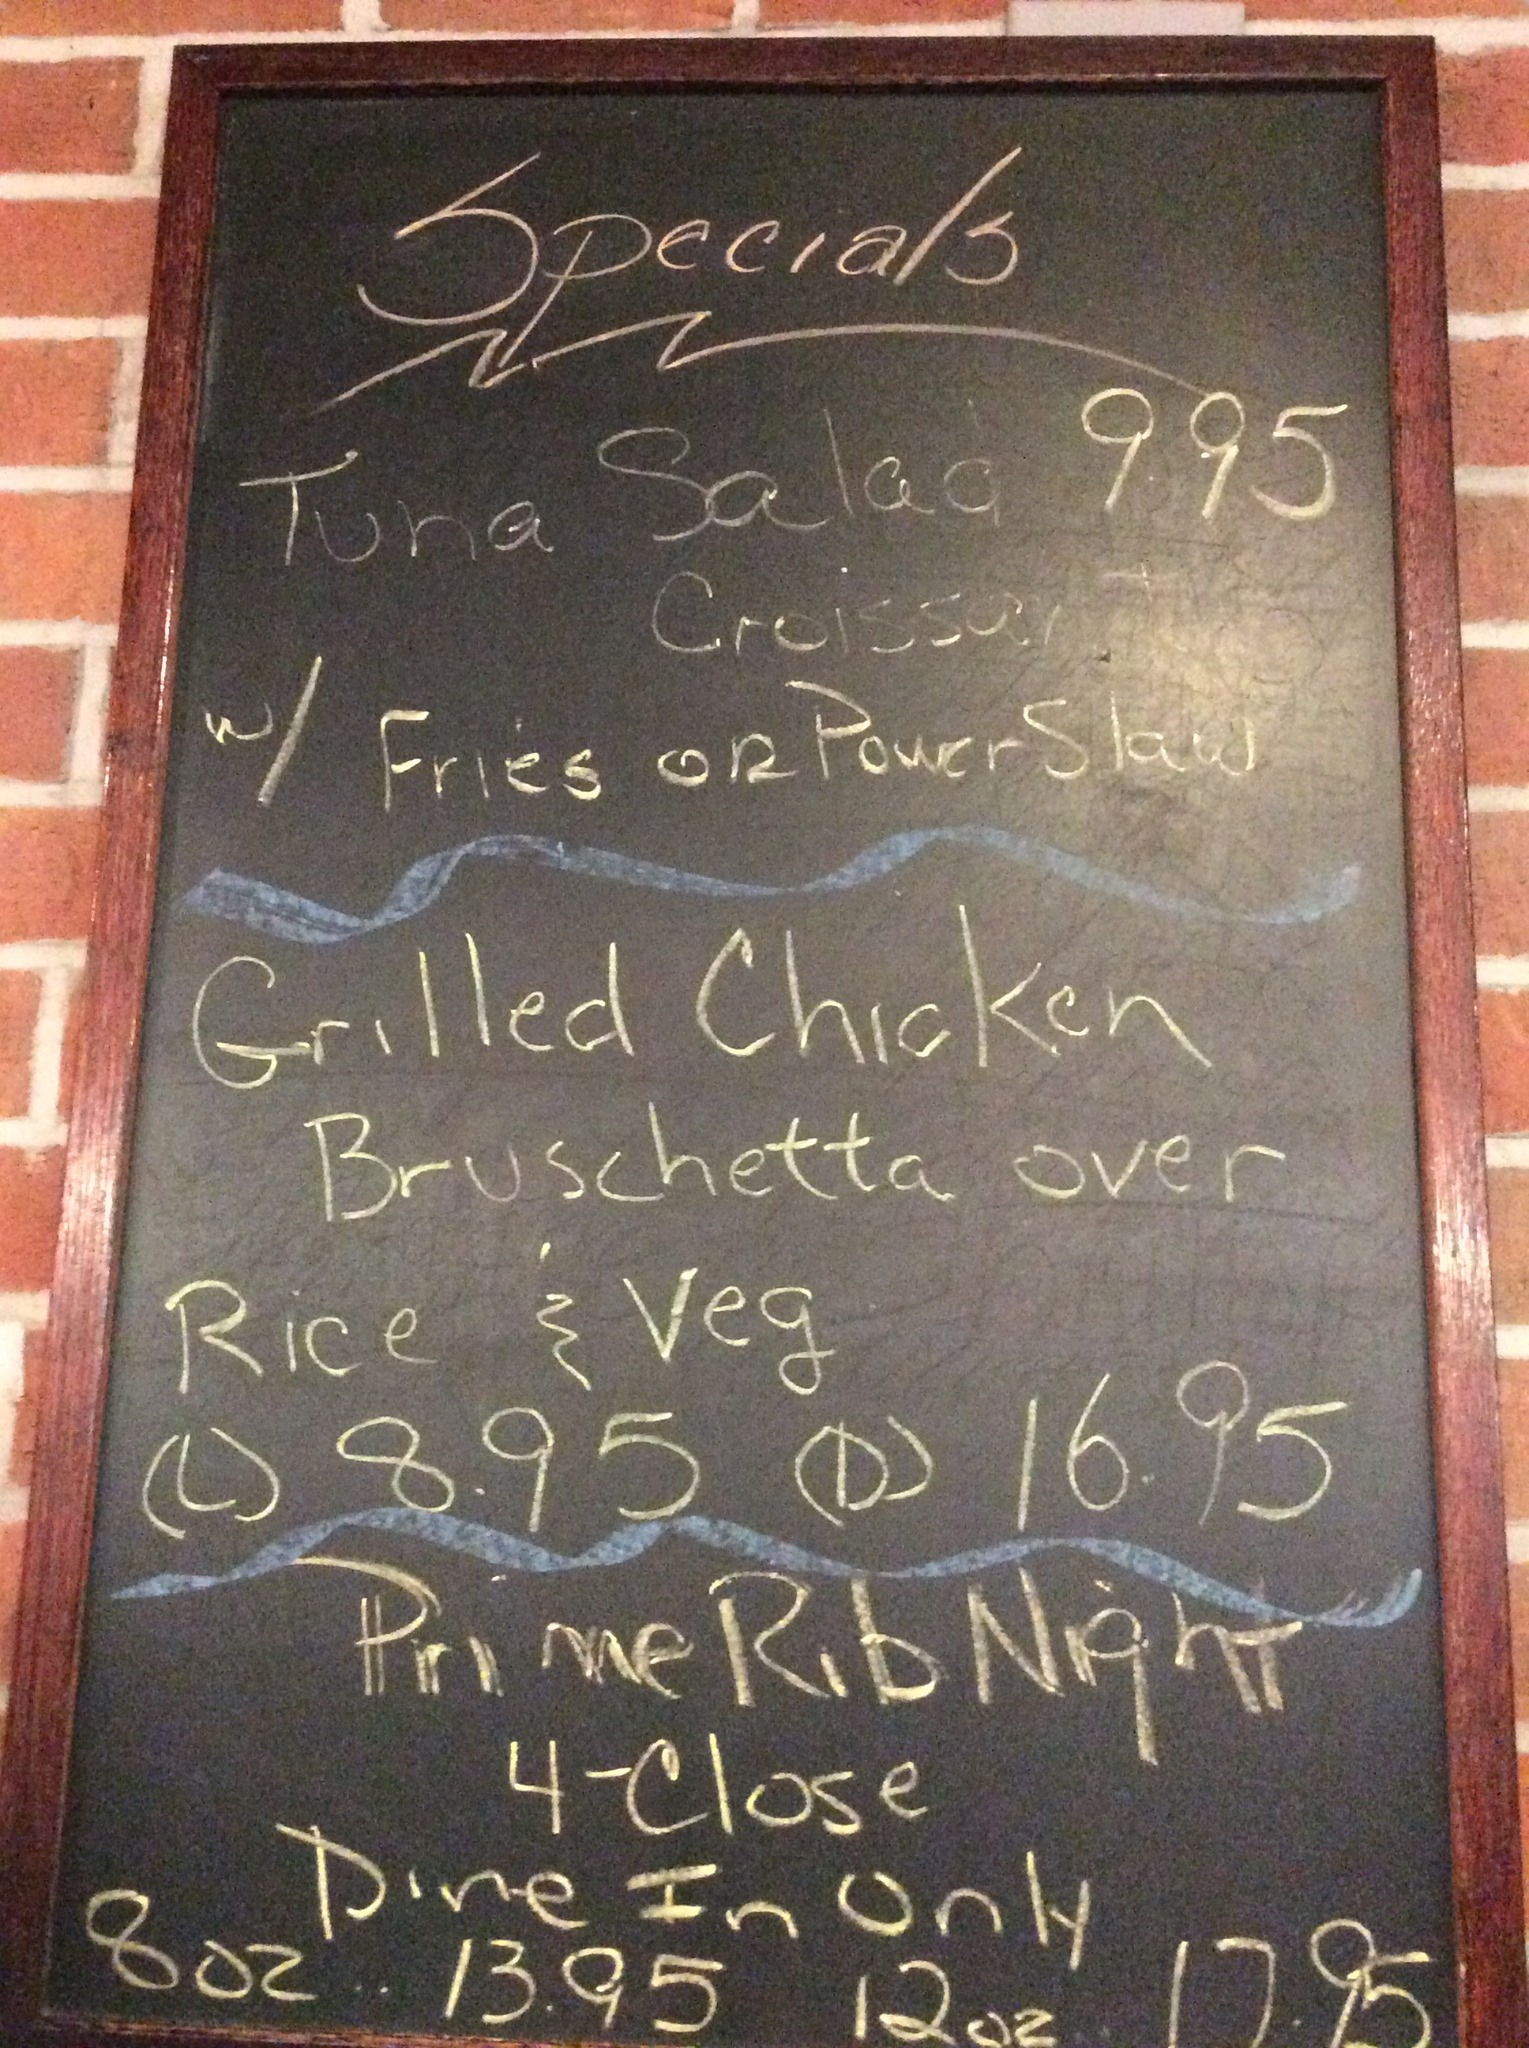 Specials
Tuna Salad 9.95
Croissant
w/ Fries or Power Slaw
Grilled Chicken
Bruschetta over
Rice & Veg
(L) 8.95 (D) 16.95
Prime Rib Night
4-Close
Dine In Only
8oz .. 13.95 12oz .. 17.95